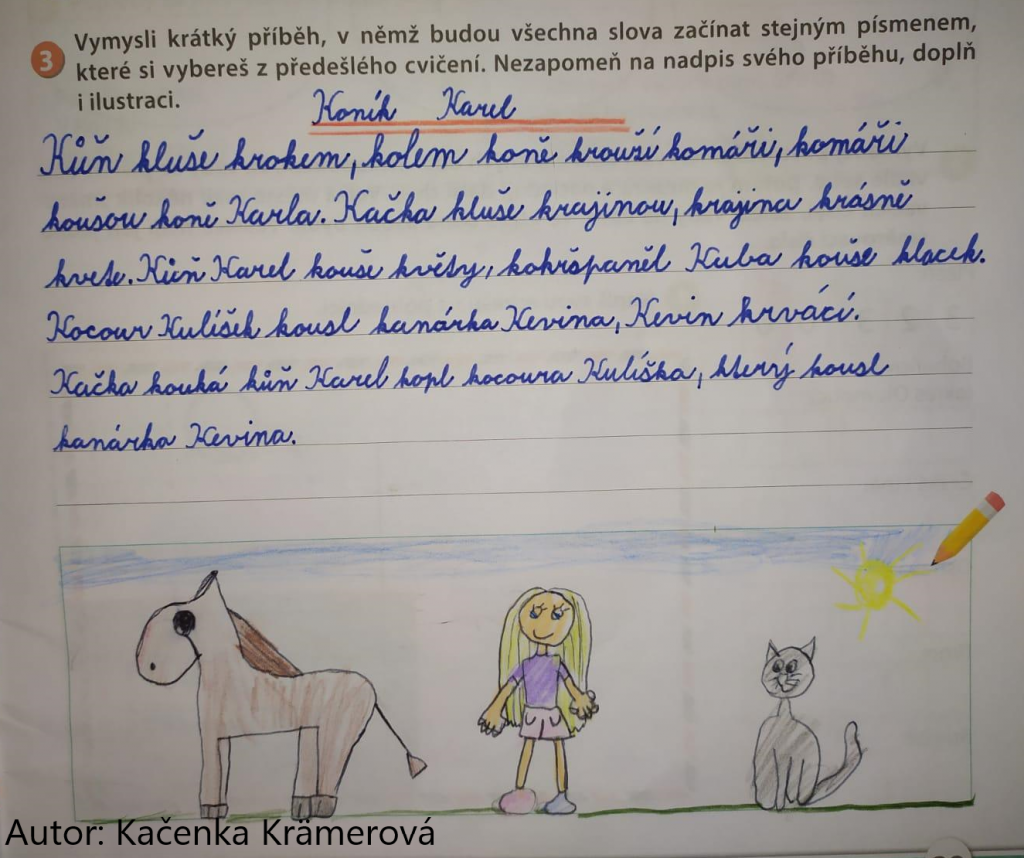 3 Vymysli krátký příběh, v němž budou všechna slova začínat stejným písmenem,
které si vybereš z předešlého cvičení. Nezapomeň na nadpis svého příběhu, doplň
i ilustraci.
Koník Karel
Kůň kluše krokem, kolem koně krouží komáři, komáři
koušou koně Karla. Kačka kluše krajinou, krajina krásně
kvete. Kůň Karel kouše květy, kokršpaněl Kuba kouše klacek.
Kocour Kulíšek kousl kanárka Kevina, Kevin krvácí.
Kačka kouká kůň Karel kopl kocoura Kulíška, který kousl
kanárka Kevina.
Autor: Kačenka Krämerová